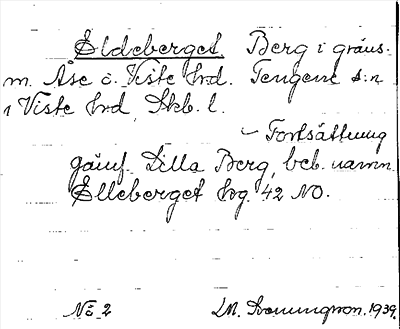 Eldeberget Berg i gräns.
m. Åse o. Viste hrd. Tengene s:n
i Viste hrd, Skb. l.
– Fortsättning
gäml. Lilla Berg, beb. namn
Elleberget hg. 42 NO.
No 2 LM. 1939.